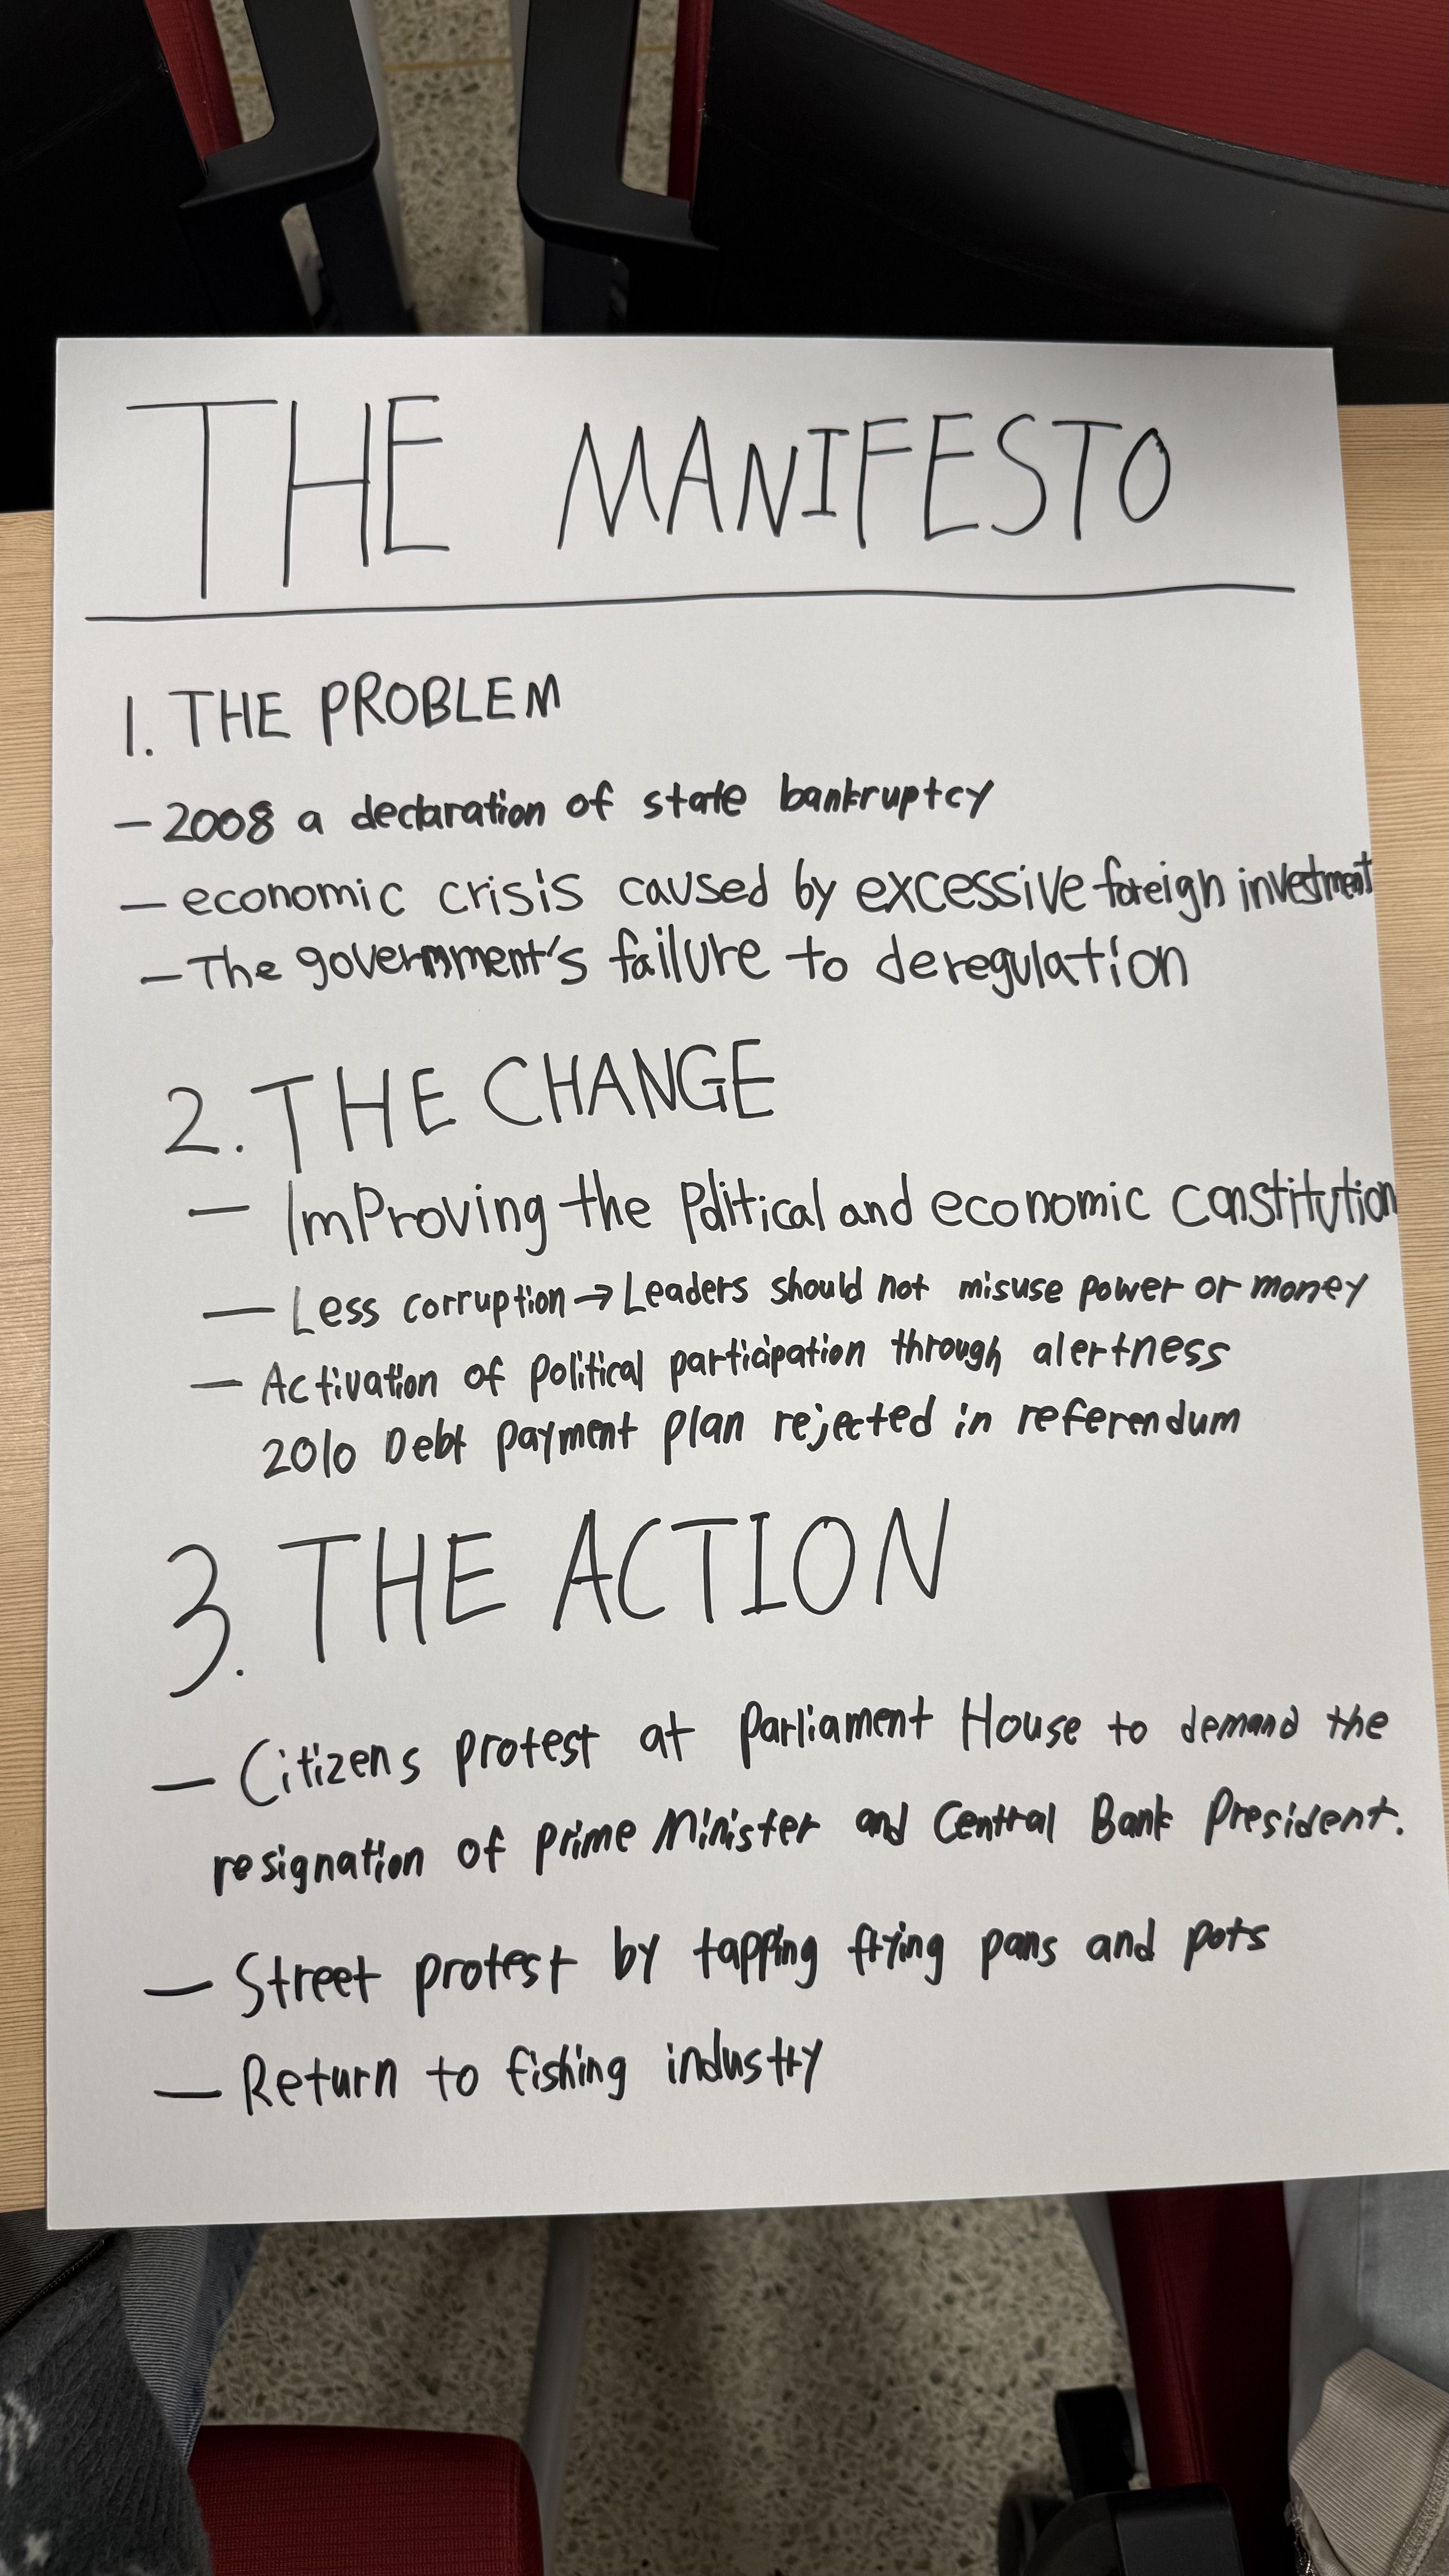 THE MANIFESTO
1. THE PROBLEM
- 2008 a declaration of state bankruptcy
- economic crisis caused by excessive foreign investment
- The government's failure to deregulation
2. THE CHANGE
- Improving the Political and economic constitution
- Less corruption → Leaders should not misuse power or money
- Activation of political participation through alertness
2010 Debt payment plan rejected in referendum
3. THE ACTION
- Citizens protest at parliament House to demand the
resignation of prime Minister and Central Bank President.
- Street protest by tapping frying pans and pots
- Return to fishing industry